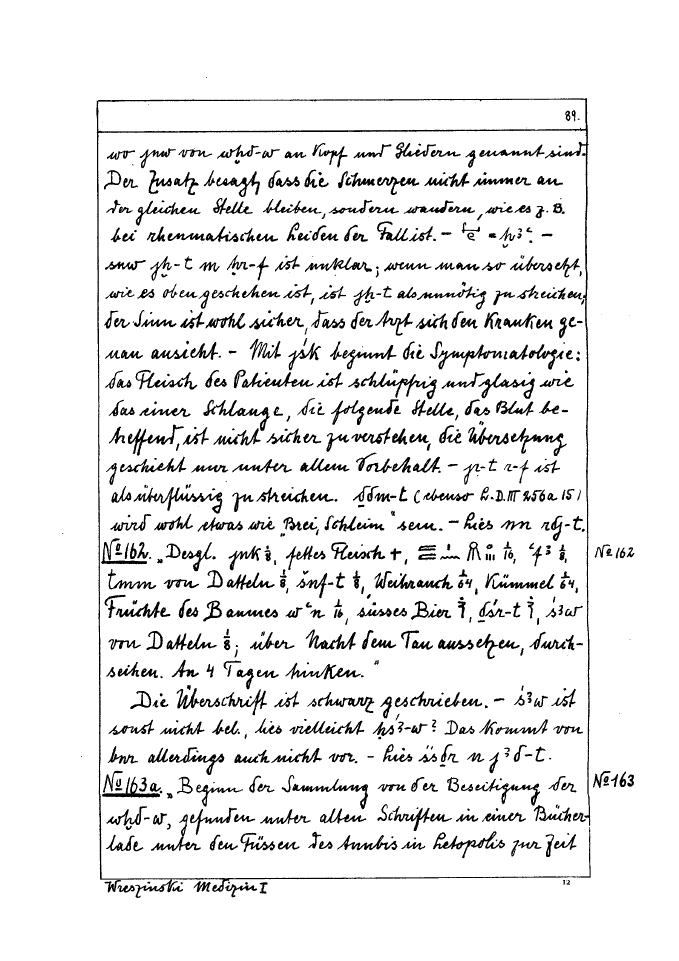 89.
wo jnw von wḫd-w an Kopf und Gliedern genannt sind.
Der Zusatz besagt, dass die Schmerzen nicht immer an
der gleichen Stelle bleiben, sondern wandern, wie es z. B.
bei rheumatischen Leiden der Fall ist. – = ḫꜣꜥ –
snw jḫ-t m ḥr-f ist unklar; wenn man so übersetzt,
wie es oben geschehen ist, ist jḫ-t als unnötig zu streichen,
der Sinn ist wohl sicher, dass der Arzt sich den Kranken ge-
nau ansieht. – Mit jśk beginnt die Symptomatologie:
das Fleisch des Patienten ist schlüpfrig und glasig wie
das einer Schlange, die folgende Stelle, das Blut be-
treffend, ist nicht sicher zu verstehen, die Übersetzung
geschieht nur unter allem Vorbehalt. – r-f ist
als überflüssig zu streichen. ddm-t (ebenso L. D. III 256a 15)
wird wohl etwas wie "Brei, Schleim" sein. – Lies nn rdj-t.
№ 162. „Desgl. jnk ⅛, fettes Fleisch +, 1/16, ꜥfꜣ ⅛,
№ 162
tmm von Datteln ⅛, šnf-t ⅛, Weihrauch 1/64, Kümmel 1/64,
Früchte des Baumes wꜥn 1/16, süsses Bier, dśr-t, śꜣw
von Datteln ⅛; über Nacht dem Tau aussetzen, durch-
seihen. An 4 Tagen trinken."
Die Überschrift ist schwarz geschrieben. – śꜣw ist
sonst nicht bel., lies vielleicht ḥśꜣ-w? Das kommt von
bnr allerdings auch nicht vor. – Lies śḏr n jꜣd-t.
№ 163a. „Beginn der Sammlung von der Beseitigung der
№ 163
wḫd-w, gefunden unter alten Schriften in einer Bücher-
lade unter den Füssen des Anubis in Letopolis zur Zeit
Wreszinski Medizin I
12